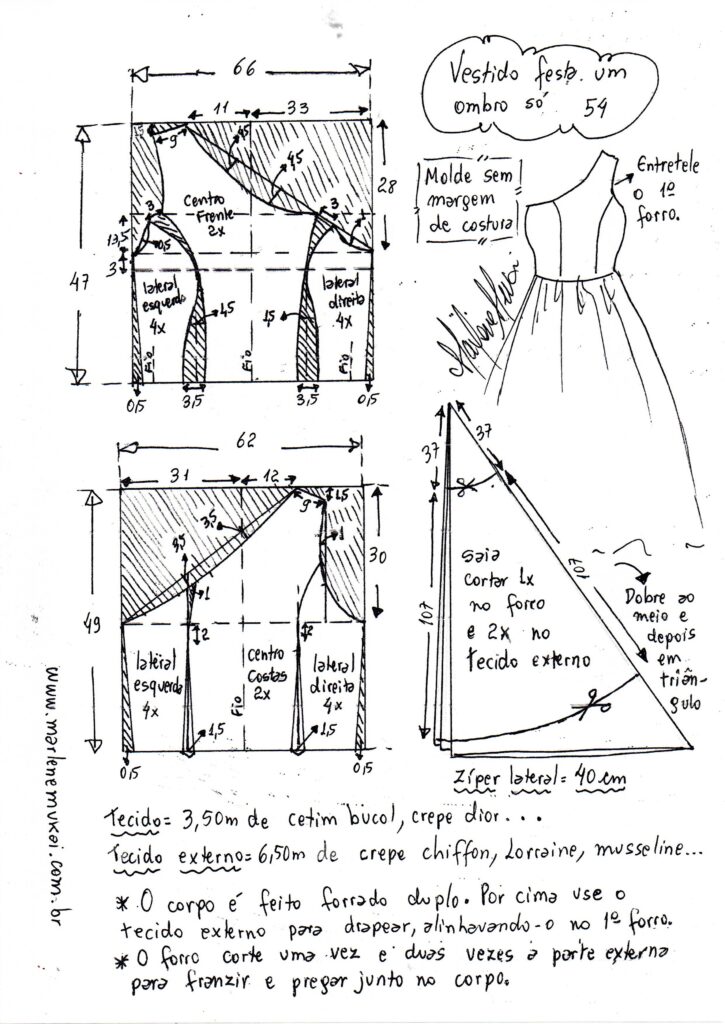 Vestido festa um
ombro só 54
Molde sem
margem
de costura
Entretele
o 1º
forro.
66
11
33
1,5
9
4,5
4,5
28
47
Centro
Frente
2x
3
3
1
13,5
0,5
3
lateral
esquerda
4x
lateral
direita
4x
1,5
1,5
Fio
Fio
Fio
0,5
3,5
3,5
0,5
62
31
12
9
1,5
3,5
3,5
1
1
30
49
2
2
lateral
esquerda
4x
Centro
Costas
2x
lateral
direita
4x
Fio
0,5
1,5
1,5
0,5
37
37
107
107
saia
cortar 1x
no forro
e 2x no
tecido externo
Dobre ao
meio e
depois
em
triân-
gulo
Zíper lateral = 40 cm
Tecido = 3,50m de cetim bucol, crepe dior...
Tecido externo = 6,50m de crepe chiffon, Lorraine, musseline...
* O corpo é feito forrado duplo. Por cima use o
tecido externo para drapear, alinhavando-o no 1º forro.
* O forro corte uma vez e duas vezes a parte externa
para franzir e pregar junto no corpo.
www.marlenemukai.com.br